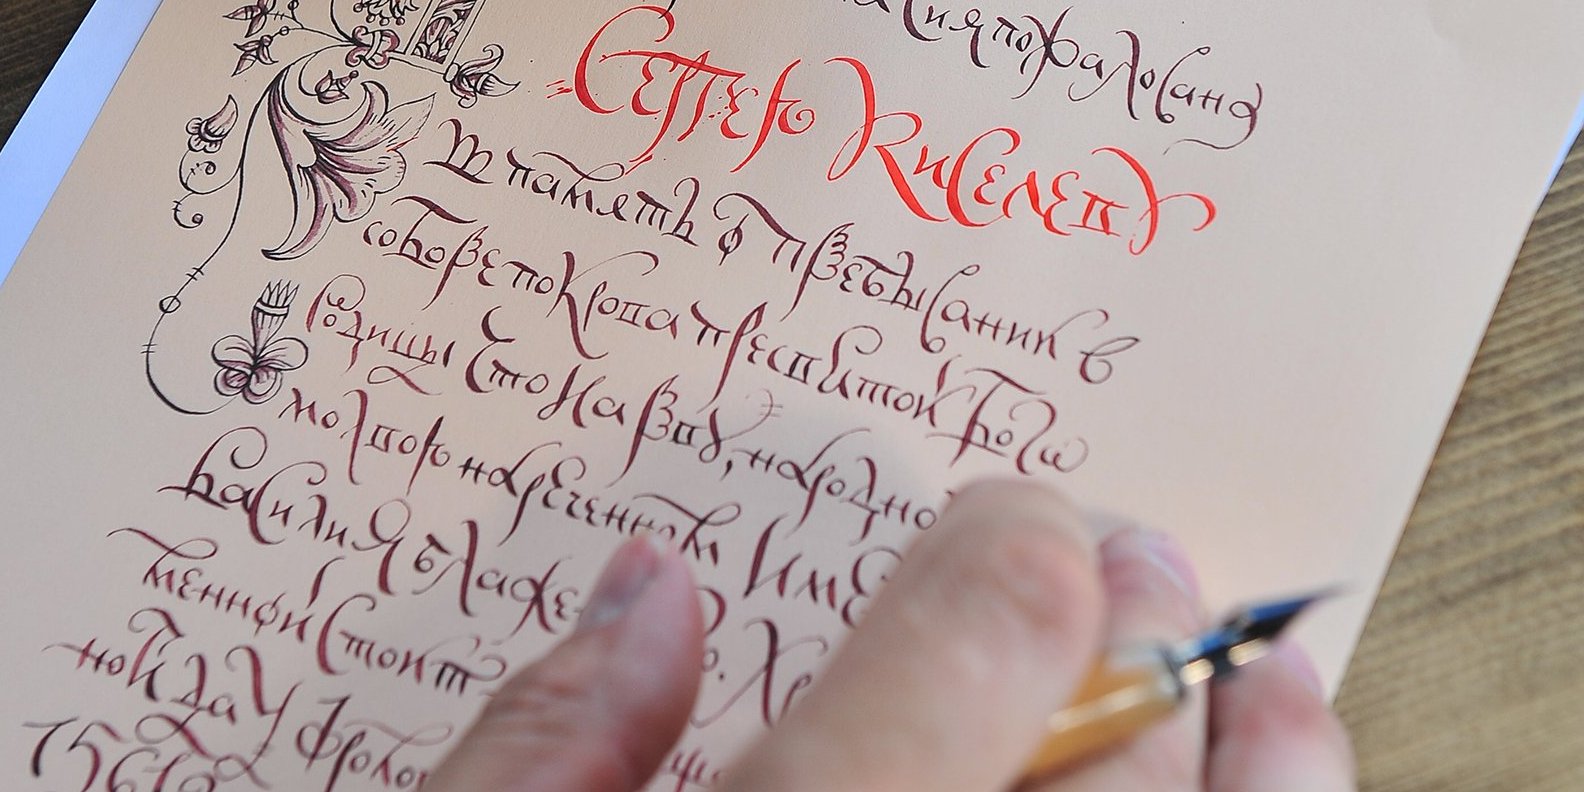 сия пожалована
Сергею Киселеву
в память о пребывании в
соборе покрова пресвятой бого
родицы что на рву, народной
молвою нареченном име
василия блаже о. Хр
менной стоит
ной да у фролов